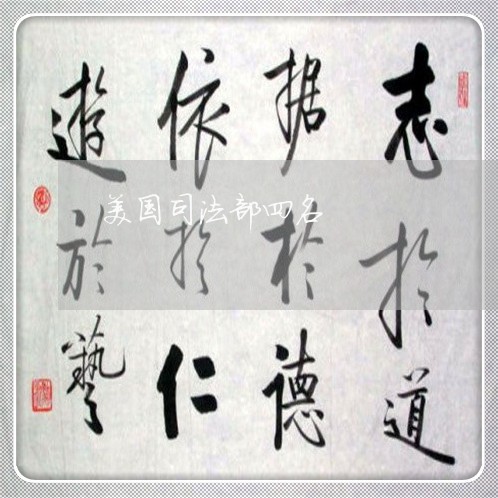 志於道
据於德
依於仁
遊於藝
美国司法部四名